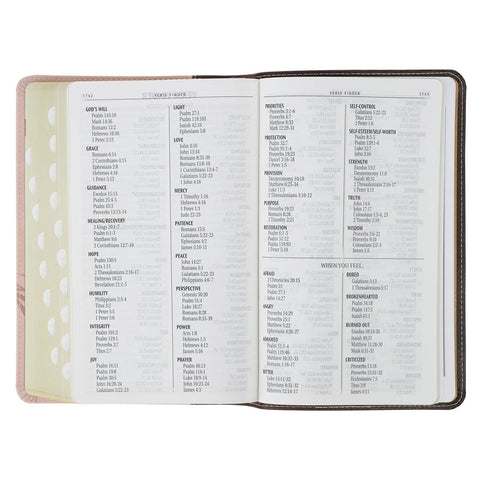 1742
VERSE FINDER
GOD'S WILL
Psalm 143:10
Mark 14:36
Romans 12:2
Hebrews 10:36
1 Peter 2:15
GRACE
Romans 6:14
2 Corinthians 4:15
Ephesians 1:6
1 Peter 5:5
GUIDANCE
Exodus 15:13
Psalm 25:4-5
Proverbs 13:13-14
HEALING/RECOVERY
2 Kings 20:1-7
Psalm 6:1-3
Matthew 9:6
2 Corinthians 12:7-9
HOPE
Psalm 130:5
Acts 1:11
2 Thessalonians 2:16-17
Hebrews 10:23
Revelation 21:1-5
HUMILITY
Philippians 2:3-4
Titus 3:2
1 Peter 5:5
INTEGRITY
Psalm 101:2
Psalm 119:1
Proverbs 2:7
JOY
Psalm 16:11
Psalm 19:8
Psalm 30:5
John 16:20-24
Galatians 5:22-23
LIGHT
Psalm 27:1
Psalm 119:105
Isaiah 42:16
Ephesians 5:8
LOVE
John 3:16
John 13:34
Romans 8:35-39
Romans 13:8-10
Galatians 5:22-23
1 John 4:7-12
MERCY
1 Timothy 1:16
Hebrews 4:16
1 Peter 1:3
Jude 22-23
PATIENCE
Romans 15:5
Galatians 5:22-23
Ephesians 4:2
James 5:10-11
PEACE
John 14:27
Galatians 5:22-23
Philippians 4:6-7
PERSPECTIVE
Genesis 50:20
Psalm 51:4
Luke 18:27
Romans 8:28
Romans 8:31-39
POWER
Acts 1:8
Romans 1:16
Hebrews 5:3
James 5:16
PRAYER
Psalm 40:13
Psalm 116:1
Luke 18:9-14
John 16:23-24
James 4:3
VERSE FINDER
1743
PRIORITIES
Proverbs 3:1-6
Proverbs 4:7
Matthew 6:33
Mark 12:29-31
PROTECTION
Psalm 32:7
Psalm 91:1-4
Proverbs 19:23
Daniel 3:16-18
1 Peter 1:5
PROVISION
Deuteronomy 10:18
Matthew 6:25-34
Luke 11:3
2 Thessalonians 3:10-12
PURPOSE
Proverbs 19:21
Romans 8:28
2 Timothy 2:21
RESTORATION
Psalm 6:1-5
Psalm 51:12
Psalm 119:93
1 Peter 5:10
SELF-CONTROL
Proverbs 25:28
Galatians 5:22-23
Titus 2:12
2 Peter 1:6
SELF-ESTEEM/SELF-WORTH
Psalm 8:3-5
Psalm 139:1-6
Luke 12:7
STRENGTH
Exodus 15:2
Deuteronomy 11:8
Isaiah 26:4
2 Thessalonians 2:16-17
TRUTH
John 14:6
John 17:17
Colossians 1:5-6, 23
2 Timothy 2:15
WISDOM
Proverbs 9:10
James 3:13-17
WHEN YOU FEEL
AFRAID
2 Chronicles 20:15
Psalm 23
Psalm 27
John 14:27
ANGRY
Proverbs 14:17
Ephesians 4:26-27
James 1:19-20
ASHAMED
Psalm 119:46
Matthew 10:32-33
2 Timothy 1:8-9
BITTER
Luke 15:11-32
Ephesians 4:31-32
Hebrews 12:14-17
BORED
Galatians 5:22-23
1 Thessalonians 5:17
BROKENHEARTED
Psalm 34:18
Psalm 147:3
Isaiah 63:9
BURNED OUT
Exodus 18:13-26
Isaiah 40:31
Matthew 11:28-30
Mark 6:31
CRITICIZED
Proverbs 1:18
Proverbs 15:31-32
Ecclesiastes 7:5
Titus 2:8
James 4:11